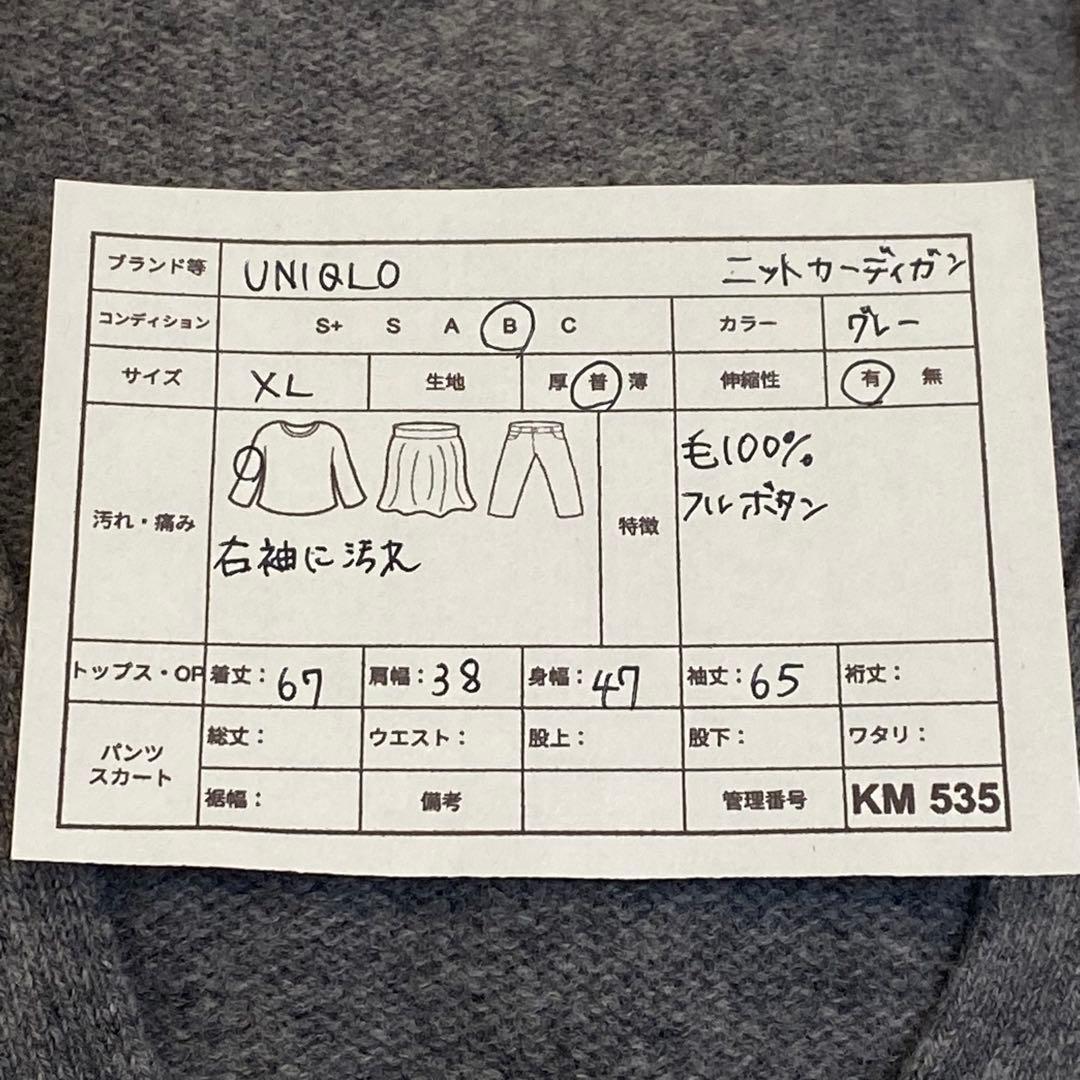 ブランド等 UNIQLO ニットカーディガン
コンディション S+ S A B C カラー グレー
サイズ XL 生地 厚 普 薄 伸縮性 有 無
汚れ・痛み 右袖に汚れ 特徴 毛100%
フルボタン
トップス・OP 着丈：67 肩幅：38 身幅：47 袖丈：65 裄丈：
パンツ スカート 総丈： ウエスト： 股上： 股下： ワタリ：
裾幅： 備考 管理番号 KM 535